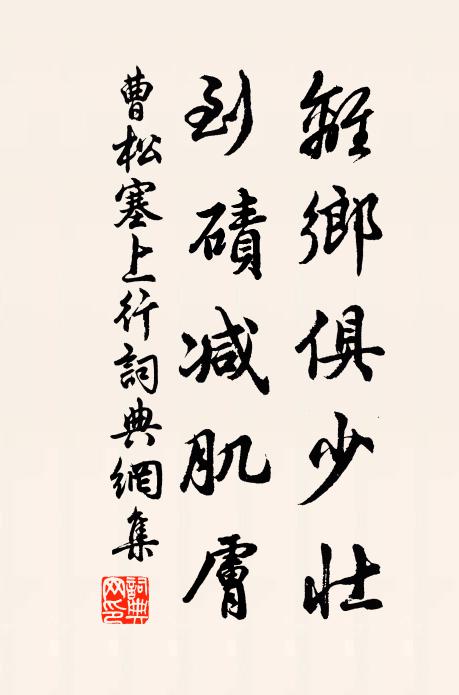 離鄉俱少壯
到磧減肌膚
曹松塞上行詞典網集
詞典网印